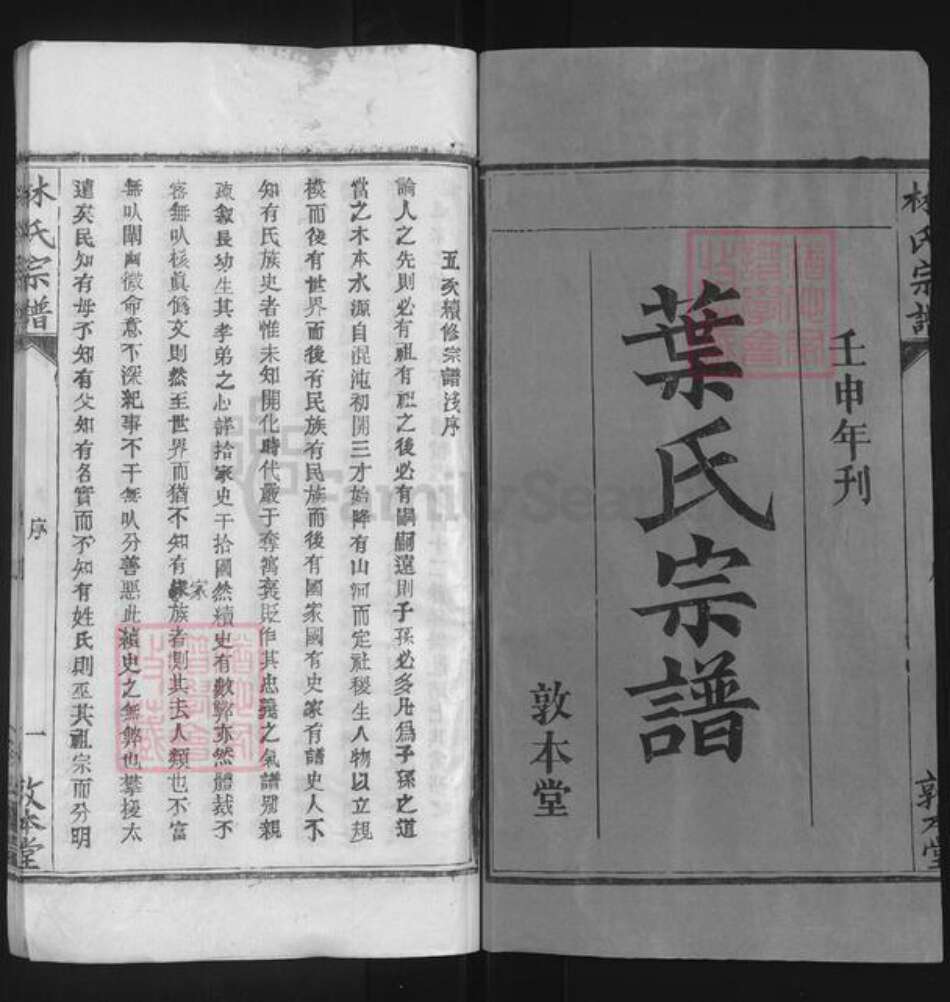 壬申年刊
葉氏宗譜
敦本堂
林氏宗譜
敦本堂
五次續修宗譜淺序
論人之先則必有祖有祖之後必有嗣嗣遠則子孫必多凡爲子孫之道
當之木本水源自混沌初開三才始降有山河而定社稷生人物以立規
模而後有世界而後有民族有民族而後有國家國有史家有譜史人不
知有氏族史者惟未知開化時代嚴于奪寓褒貶作其忠義之氣譜別親
疏敘長幼生其孝弟之心譜拾家史于拾國然續史有數弊亦然體裁不
審無㕥核眞僞文則然至世界而猶不知有家族者則其去人類也不富
無㕥闡幽微命意不深紀事不干無㕥分善惡此續史之無弊也攀援太
遠矣民知有母不知有父知有名實而不知有姓氏則巫其祖宗而分明
林氏宗譜
序
一
敦本堂